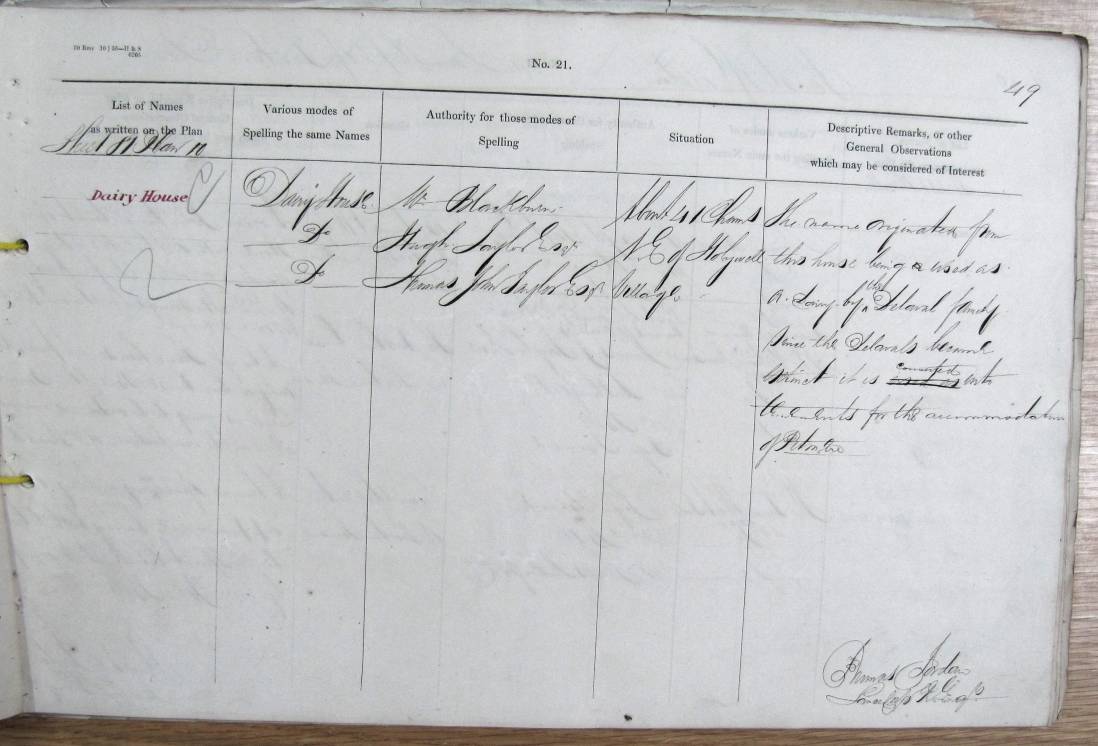 No. 21.
49
List of Names
as written on the Plan
Various modes of
Spelling the same Names
Authority for those modes of
Spelling
Situation
Descriptive Remarks, or other
General Observations
which may be considered of Interest
Plan 10
Dairy House
Dairy House
Do
Do
Mr Blackburn
Hugh Taylor Esqr
Thomas John Taylor Esqr
About 41 Chains
N.E. of Holywell
Village
The name originated from
this house being a used as
a Dairy by the Delaval family
since the Delavals became
extinct it is used as converted into
tenements for the accommodation
of
Thomas Jordan